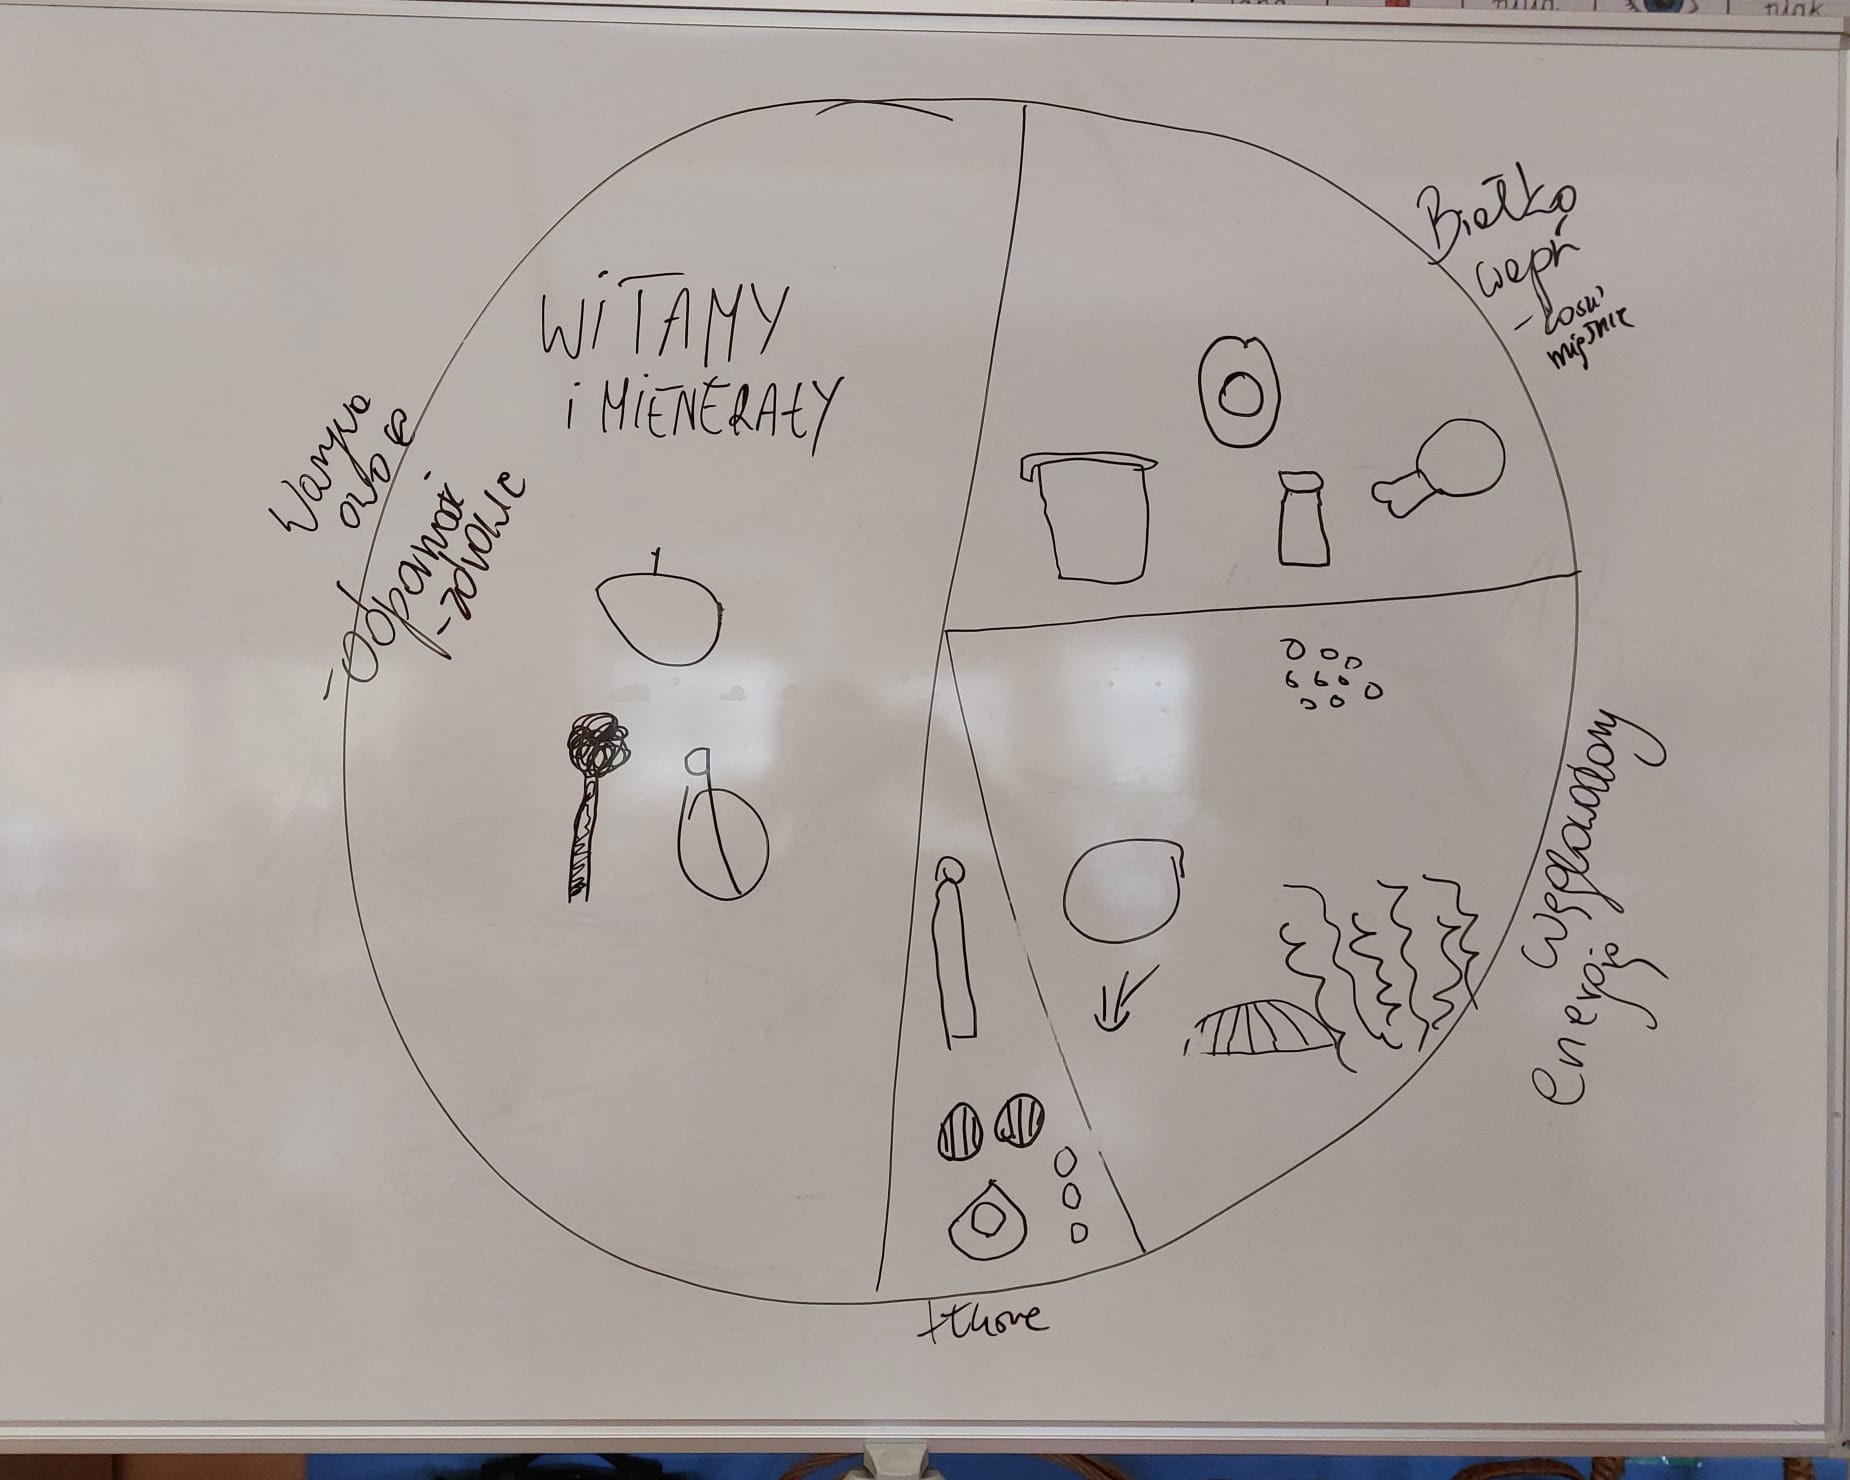 WiTAMY
i MiENERAŁY
Warzywa
owoce
- odporność
- zdrowie
Białko
wapń
- kości
mięśnie
Węglowodany
energia
tłuszcze